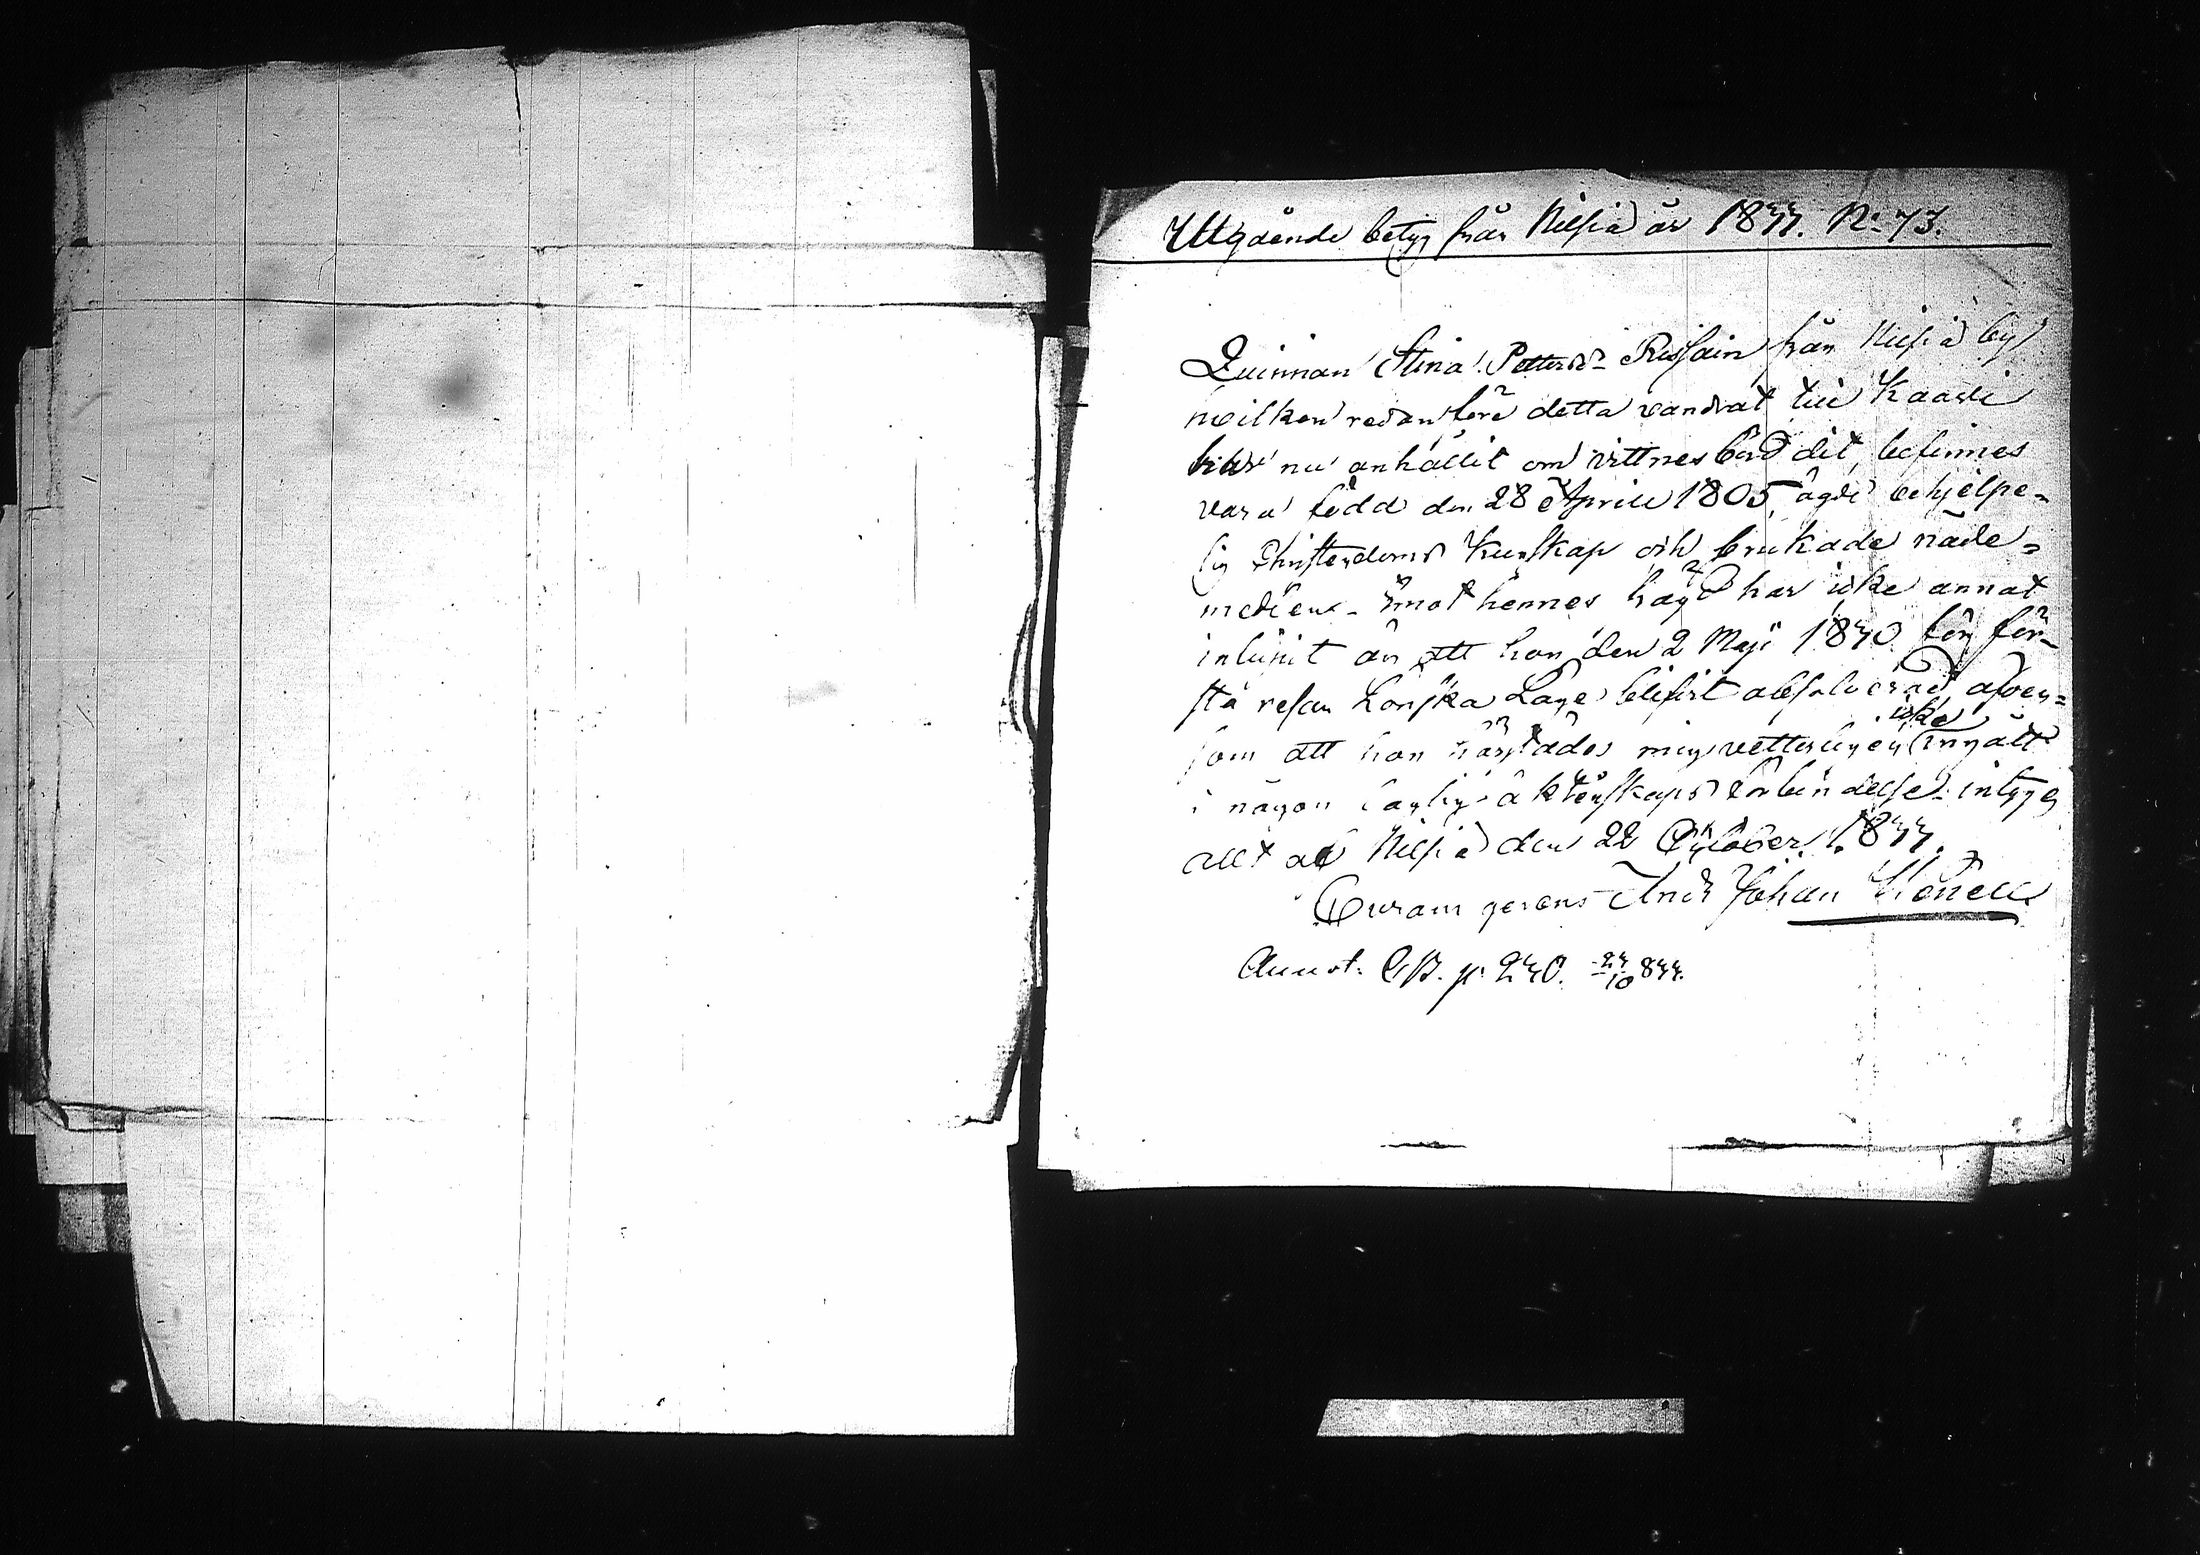 Utgående betyg från Nilsiä år 1844. N: 73.
Quinnan Stina Pettersd:r Rissain från Nilsiä by
hvilken redan före detta vandrat till Kaavi
har nu anhållit om vittnesbörd dit, befinnes
vara född den 28 Aprill 1805, ägde behjelpe=
lig Christendoms kunskap och brukade nåde=
medlen. Emot hennes fräjd har icke annat
influtit än att hon den 2 Maji 1840 för för=
sta resan Lönska Läge blifvit absolverad, äfven=
som att hon härstädes mig vetterligen icke ingått
i någon laglig äktenskaps förbindelse. intygas
allt af Nilsiä den 22 October 1844.
Curam gerens And: Johan
Annot. C.B. p. 240. 24/10 844.